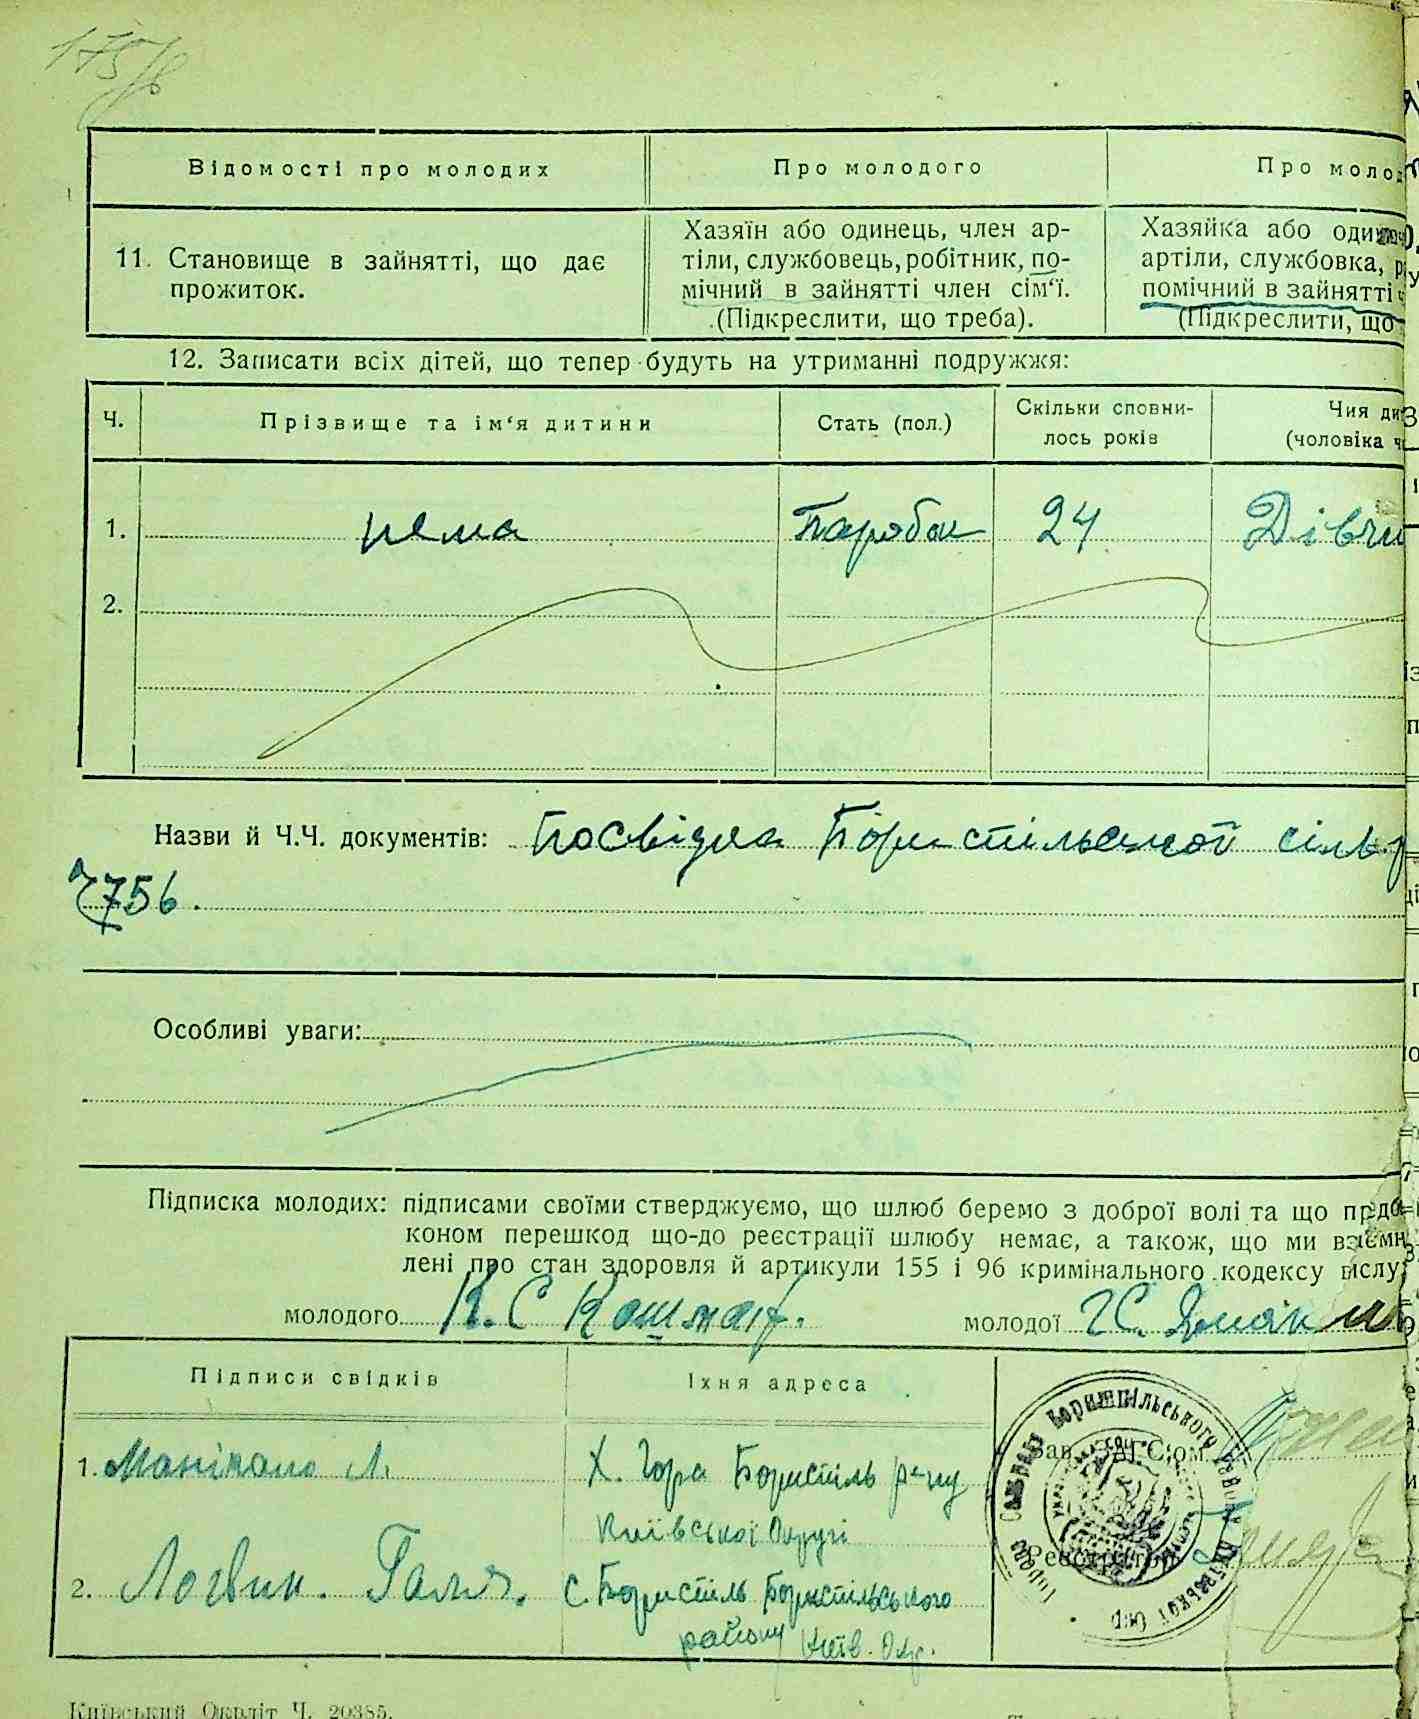 175/8
Відомості про молодих
Про молодого
Про молод
11. Становище в зайнятті, що дає
прожиток.
Хазяїн або одинець, член ар-
тіли, службовець, робітник, по-
мічний в зайнятті член сім'ї.
(Підкреслити, що треба).
Хазяйка або один
артіли, службовка, р
помічний в зайнятті
(Підкреслити, що
12. Записати всіх дітей, що тепер будуть на утриманні подружжя:
Ч.
Прізвище та ім'я дитини
Стать (пол.)
Скільки сповни-
лось років
Чия ди
(чоловіка ч
1. нема Парубок 24 Дівчи
2.
Назви й Ч.Ч. документів: Посвідка Бориспільської сіль.р
756.
Особливі уваги:
Підписка молодих: підписами своїми стверджуємо, що шлюб беремо з доброї волі та що пр
коном перешкод що-до реєстрації шлюбу немає, а також, що ми взаємн
лені про стан здоровля й артикули 155 і 96 кримінального кодексу
молодого К. С
молодої Г С.
Підписи свідків
Їхня адреса
1.
Х. Гора Бориспіль р-ну
Київської Округі
2. Логвин. Галя.
с. Бориспіль Бориспільського
району Київ. Окр.
Зав. ЗАГС'ом
Реєстратор
Київський Окрліт Ч. 20385.